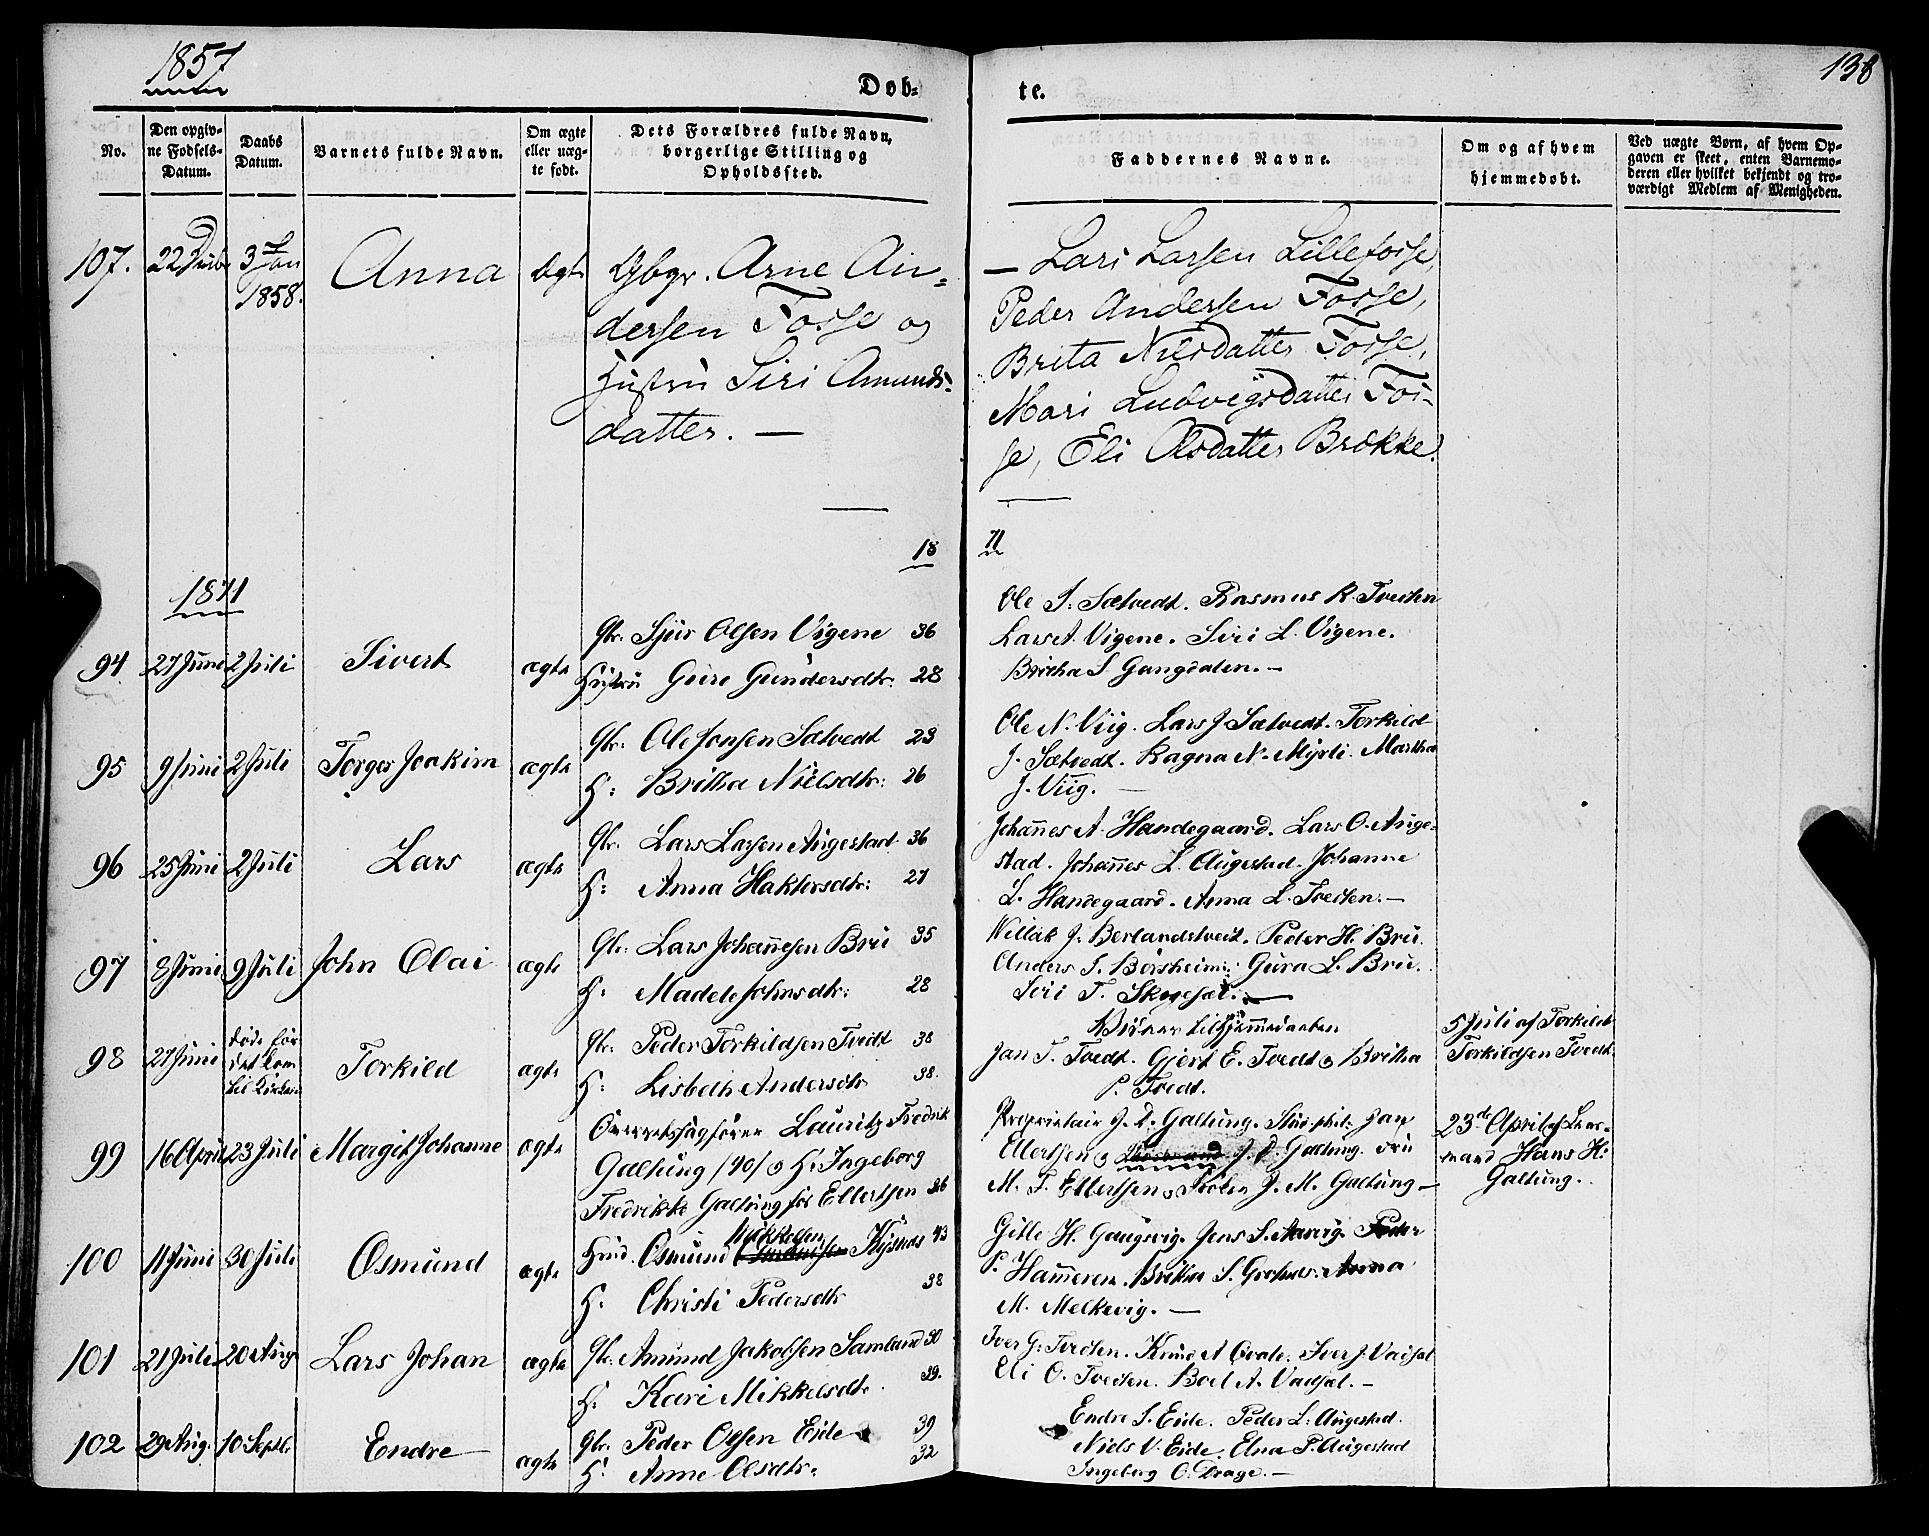 1857
138
Døb=
te.
No.
Den opgiv-
ne Fødsels-
Datum.
Daabs
Datum.
Barnets fulde Navn.
Om ægte
eller uæg-
te født.
Dets Forældres fulde Navn,
borgerlige Stilling og
Opholdssted.
Faddernes Navne.
Om og af hvem
hjemmedøbt.
Ved uægte Børn, af hvem Op-
gaven er skeet, enten Barnemo-
deren eller hvilket bekjendt og tro-
værdigt Medlem af Menigheden.
107.
22
3 Jan
1858.
Anna
ægte
Gbgr. Arne An-
dersen Fosse og
Hustru Siri Amunds-
datter. —
— Lars Larsen Lillefosse,
Peder Andersen Fosse,
Brita Nilsdatter Fosse,
Mari Ludvigsdatter Fos-
se, Eli Olsdatter Brokke.
18
71
1871
94
27 Juni
2 Juli
Sivert
ægte
Gbr. Sjur Olsen Vigene 36
Hustru Guro Gundersdtr. 28
Ole S. Sætvedt. Rasmus R. Tveiten
Lars A. Vigene. Siri L. Vigene.
Britha S Gangdalen. —
95
9 Juni
2 Juli
Torger Joakim
ægte
Gbr: Ole Jonsen Sætvedt 23
H: Britha Nielsdtr: 26
Ole N. Viig. Lars J Sætvedt. Torkild
J. Sætvedt. Ragna N. Myrli. Martha
J. Viig. —
96
25 Juni
2 Juli
Lars
ægte
Gbr. Lars Larsen Augestad 36
H: Anna Haktorsdtr: 27
Johannes A. Handegaard. Lars O. Auge-
stad. Johannes L. Augestad. Johanne
L. Handegaard. Anna L. Tveiten. —
97
8 Juni
9 Juli
John Olai
ægte
Gbr: Lars Johannesen Bru 35
H. Madele Johnsdtr: 28
Willak J. Berlandstveit. Peder H. Bru.
Anders S. Børsheim. Gura L. Bru.
Siri T. —
98
27 Juni
døde før
det kom
til Kirken
Torkild
ægte
Gbr: Peder Torkildsen Tvedt 38
H: Lisbeth Andersdtr 38.
Vidner til Hjemmedaaben
Jan T. Tvedt. Gjert E. Tvedt o Britha
P. Tvedt.
5 Juli af Torkild
Torkildsen Tvedt.
99
16 April
23 Juli
Margit Johanne
ægte
Overretssagfører Lauritz Fredrik
Galtung /40/ o H: Ingeborg
Fredrikke Galtung født Ellertsen 36
Proprietair J. D. Galtung. Stud. phil: Jan
Ellertsen o J. D Galtung. Fru
M. T. Ellertsen o Frøken J. M. Galtung —
23de April af Lens-
mand Hans H:
Galtung.
100
11 Juni
30 Juli
Osmund
ægte
Osmund 43
H. Christi Pedersdtr 38
Gitle H. Gaugsvig. Jens S. Peder
P. Hammeren. Britha S. Anna
M. Melkevig. —
101
21 Juli
20 Aug
Lars Johan
ægte
Gbr: Amund Jakobsen Samland 30
H. Kari Mikkelsdtr. 39.
Iver G. Tveiten. Knud A Iver J. Vadsel
Eli O. Tveiten. Boel A. Vadsel. —
102
29 Aug.
10 Septb.
Endre
ægte
Gbr. Peder Olsen Eide 39
H: Anne Olsdtr. 32
Endre S. Eide. Peder L. Augestad.
Niels V. Eide. Elna P. Augestad
Ingeborg O. Drage. —